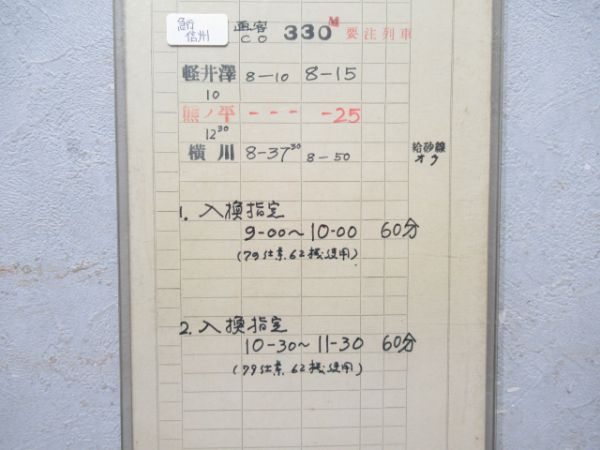 信州 直客 330M 要注列車
CO
軽井澤 8-10 8-15
10
熊ノ平 - - - -25
12 30
横川 8-37 30 8-50 給砂線
オク
1. 入換指定
9-00〜10-00 60分
(79仕業.62機使用)
2. 入換指定
10-30〜11-30 60分
(79仕業.62機使用)